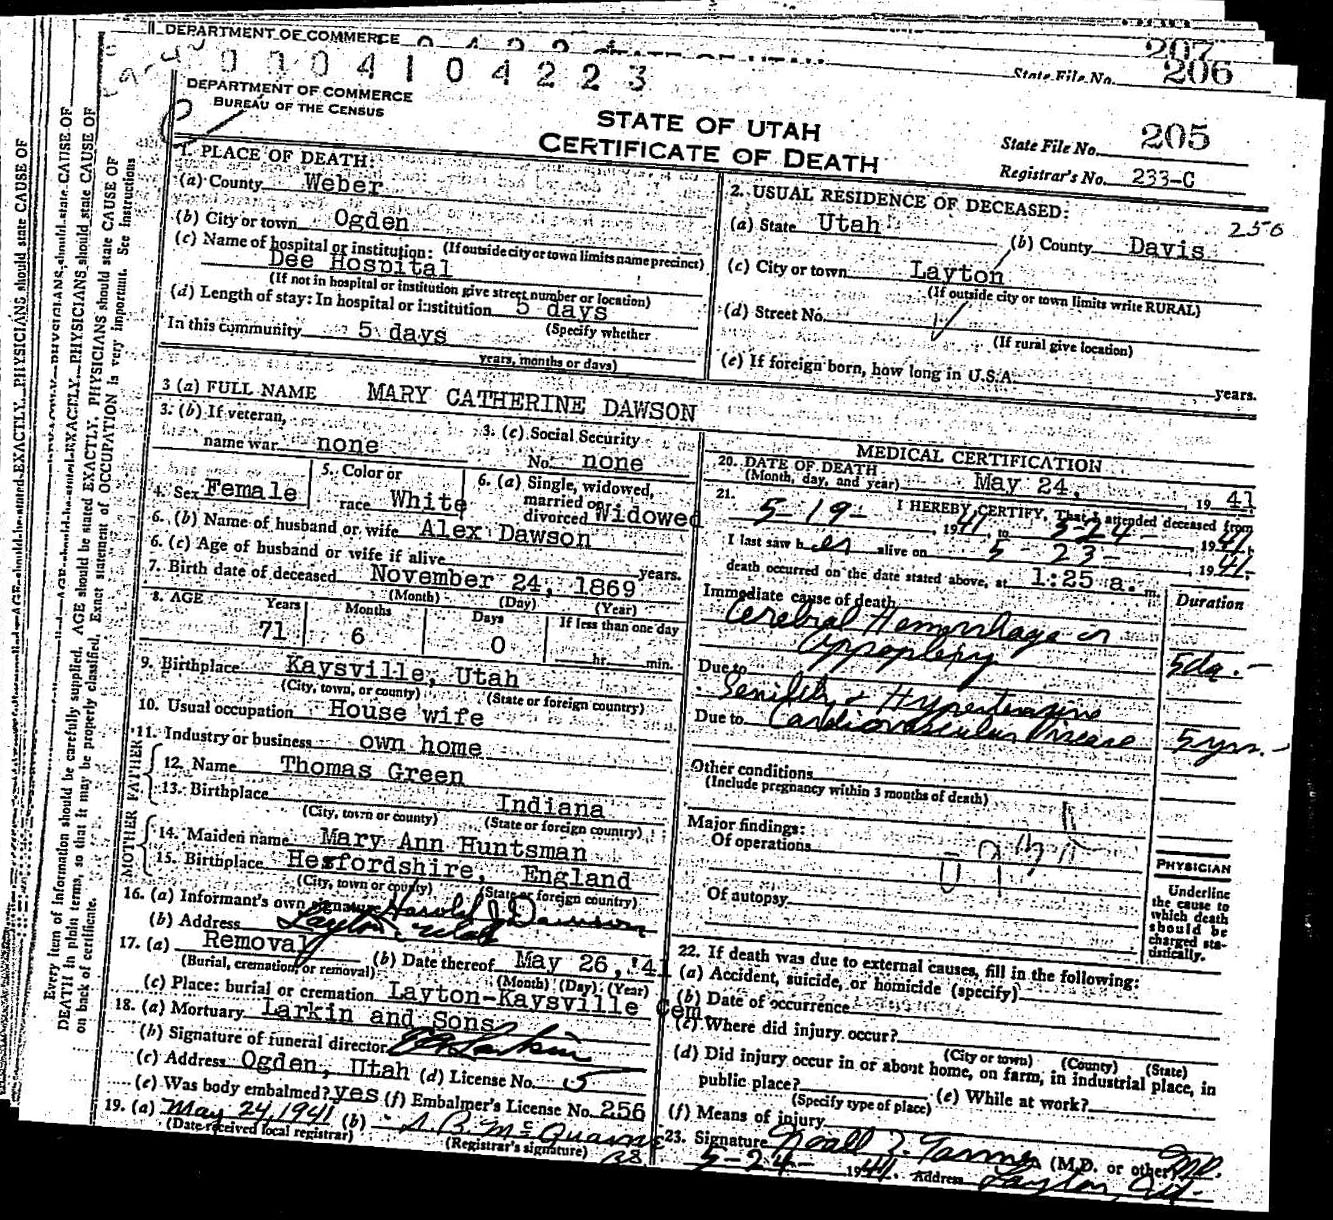 207
206
State File No.
DEPARTMENT OF COMMERCE
0 0 0 4 1 0 4 2 2 3
DEPARTMENT OF COMMERCE
BUREAU OF THE CENSUS
STATE OF UTAH
CERTIFICATE OF DEATH
State File No. 205
Registrar's No. 233-C
1. PLACE OF DEATH:
(a) County Weber
(b) City or town Ogden
(c) Name of hospital or institution: (If outside city or town limits name precinct)
Dee Hospital
(If not in hospital or institution give street number or location)
(d) Length of stay: In hospital or institution 5 days
(Specify whether
In this community 5 days
years, months or days)
2. USUAL RESIDENCE OF DECEASED:
250
(a) State Utah (b) County Davis
(c) City or town Layton
(If outside city or town limits write RURAL)
(d) Street No.
(If rural give location)
(e) If foreign born, how long in U.S.A. years.
3 (a) FULL NAME MARY CATHERINE DAWSON
3. (b) If veteran,
name war none
3. (c) Social Security
No. none
4. Sex Female
5. Color or
race White
6. (a) Single, widowed,
married or
divorced Widowed
6. (b) Name of husband or wife Alex Dawson
6. (c) Age of husband or wife if alive years.
7. Birth date of deceased November 24, 1869
(Month) (Day) (Year)
8. AGE Years Months Days If less than one day
71 6 0 hr. min.
9. Birthplace Kaysville, Utah
(City, town, or county) (State or foreign country)
10. Usual occupation House wife
11. Industry or business own home
FATHER
12. Name Thomas Green
13. Birthplace Indiana
(City, town or county) (State or foreign country)
MOTHER
14. Maiden name Mary Ann Huntsman
15. Birthplace Hesfordshire, England
(City, town or county) (State or foreign country)
16. (a) Informant's own signature Harold J Dawson
(b) Address Layton Utah
17. (a) Removal (b) Date thereof May 26, '41
(Burial, cremation, or removal) (Month) (Day) (Year)
(c) Place: burial or cremation Layton-Kaysville Cem
18. (a) Mortuary Larkin and Sons
(b) Signature of funeral director
(c) Address Ogden, Utah (d) License No. 5
(e) Was body embalmed? yes (f) Embalmer's License No. 256
19. (a) May 24 1941 (b)
(Date received local registrar) (Registrar's signature)
MEDICAL CERTIFICATION
20. DATE OF DEATH
(Month, day, and year) May 24, 1941
21. I HEREBY CERTIFY, That I attended deceased from
5-19- 1941, to 5-24- 1941.
I last saw her alive on 5-23- 1941.
death occurred on the date stated above, at 1:25 a. m.
Immediate cause of death Duration
Cerebral Hemorrhage or
Appoplexy 5da.-
Due to
Senility & Hypertensive
Due to Cardiovascular Disease 5 yrs.-
Other conditions
(Include pregnancy within 3 months of death)
Major findings:
Of operations
Of autopsy
PHYSICIAN
Underline
the cause to
which death
should be
charged sta-
tistically.
22. If death was due to external causes, fill in the following:
(a) Accident, suicide, or homicide (specify)
(b) Date of occurrence
(c) Where did injury occur?
(City or town) (County) (State)
(d) Did injury occur in or about home, on farm, in industrial place, in
public place? (e) While at work?
(Specify type of place)
(f) Means of injury
23. Signature Noall Z. Tanner (M.D. or other) MD.
5-24- 1941. Address Layton, Ut.
Every item of information should be carefully supplied. AGE should be stated EXACTLY. PHYSICIANS should state CAUSE OF
DEATH in plain terms, so that it may be properly classified. Exact statement of OCCUPATION is very important. See Instructions
on back of certificate.